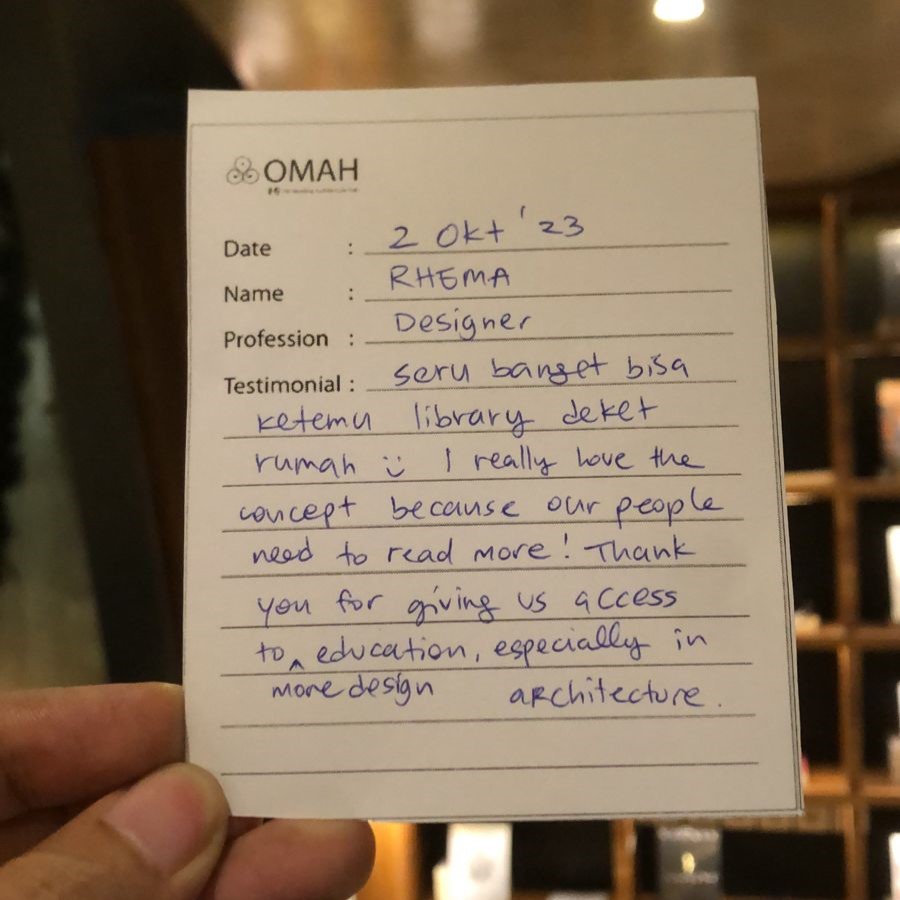 OMAH
Date : 2 Okt '23
Name : RHEMA
Profession : Designer
Testimonial : seru banget bisa
ketemu library deket
rumah :) I really love the
concept because our people
need to read more! Thank
you for giving us access
to ^ education, especially in
more design architecture.